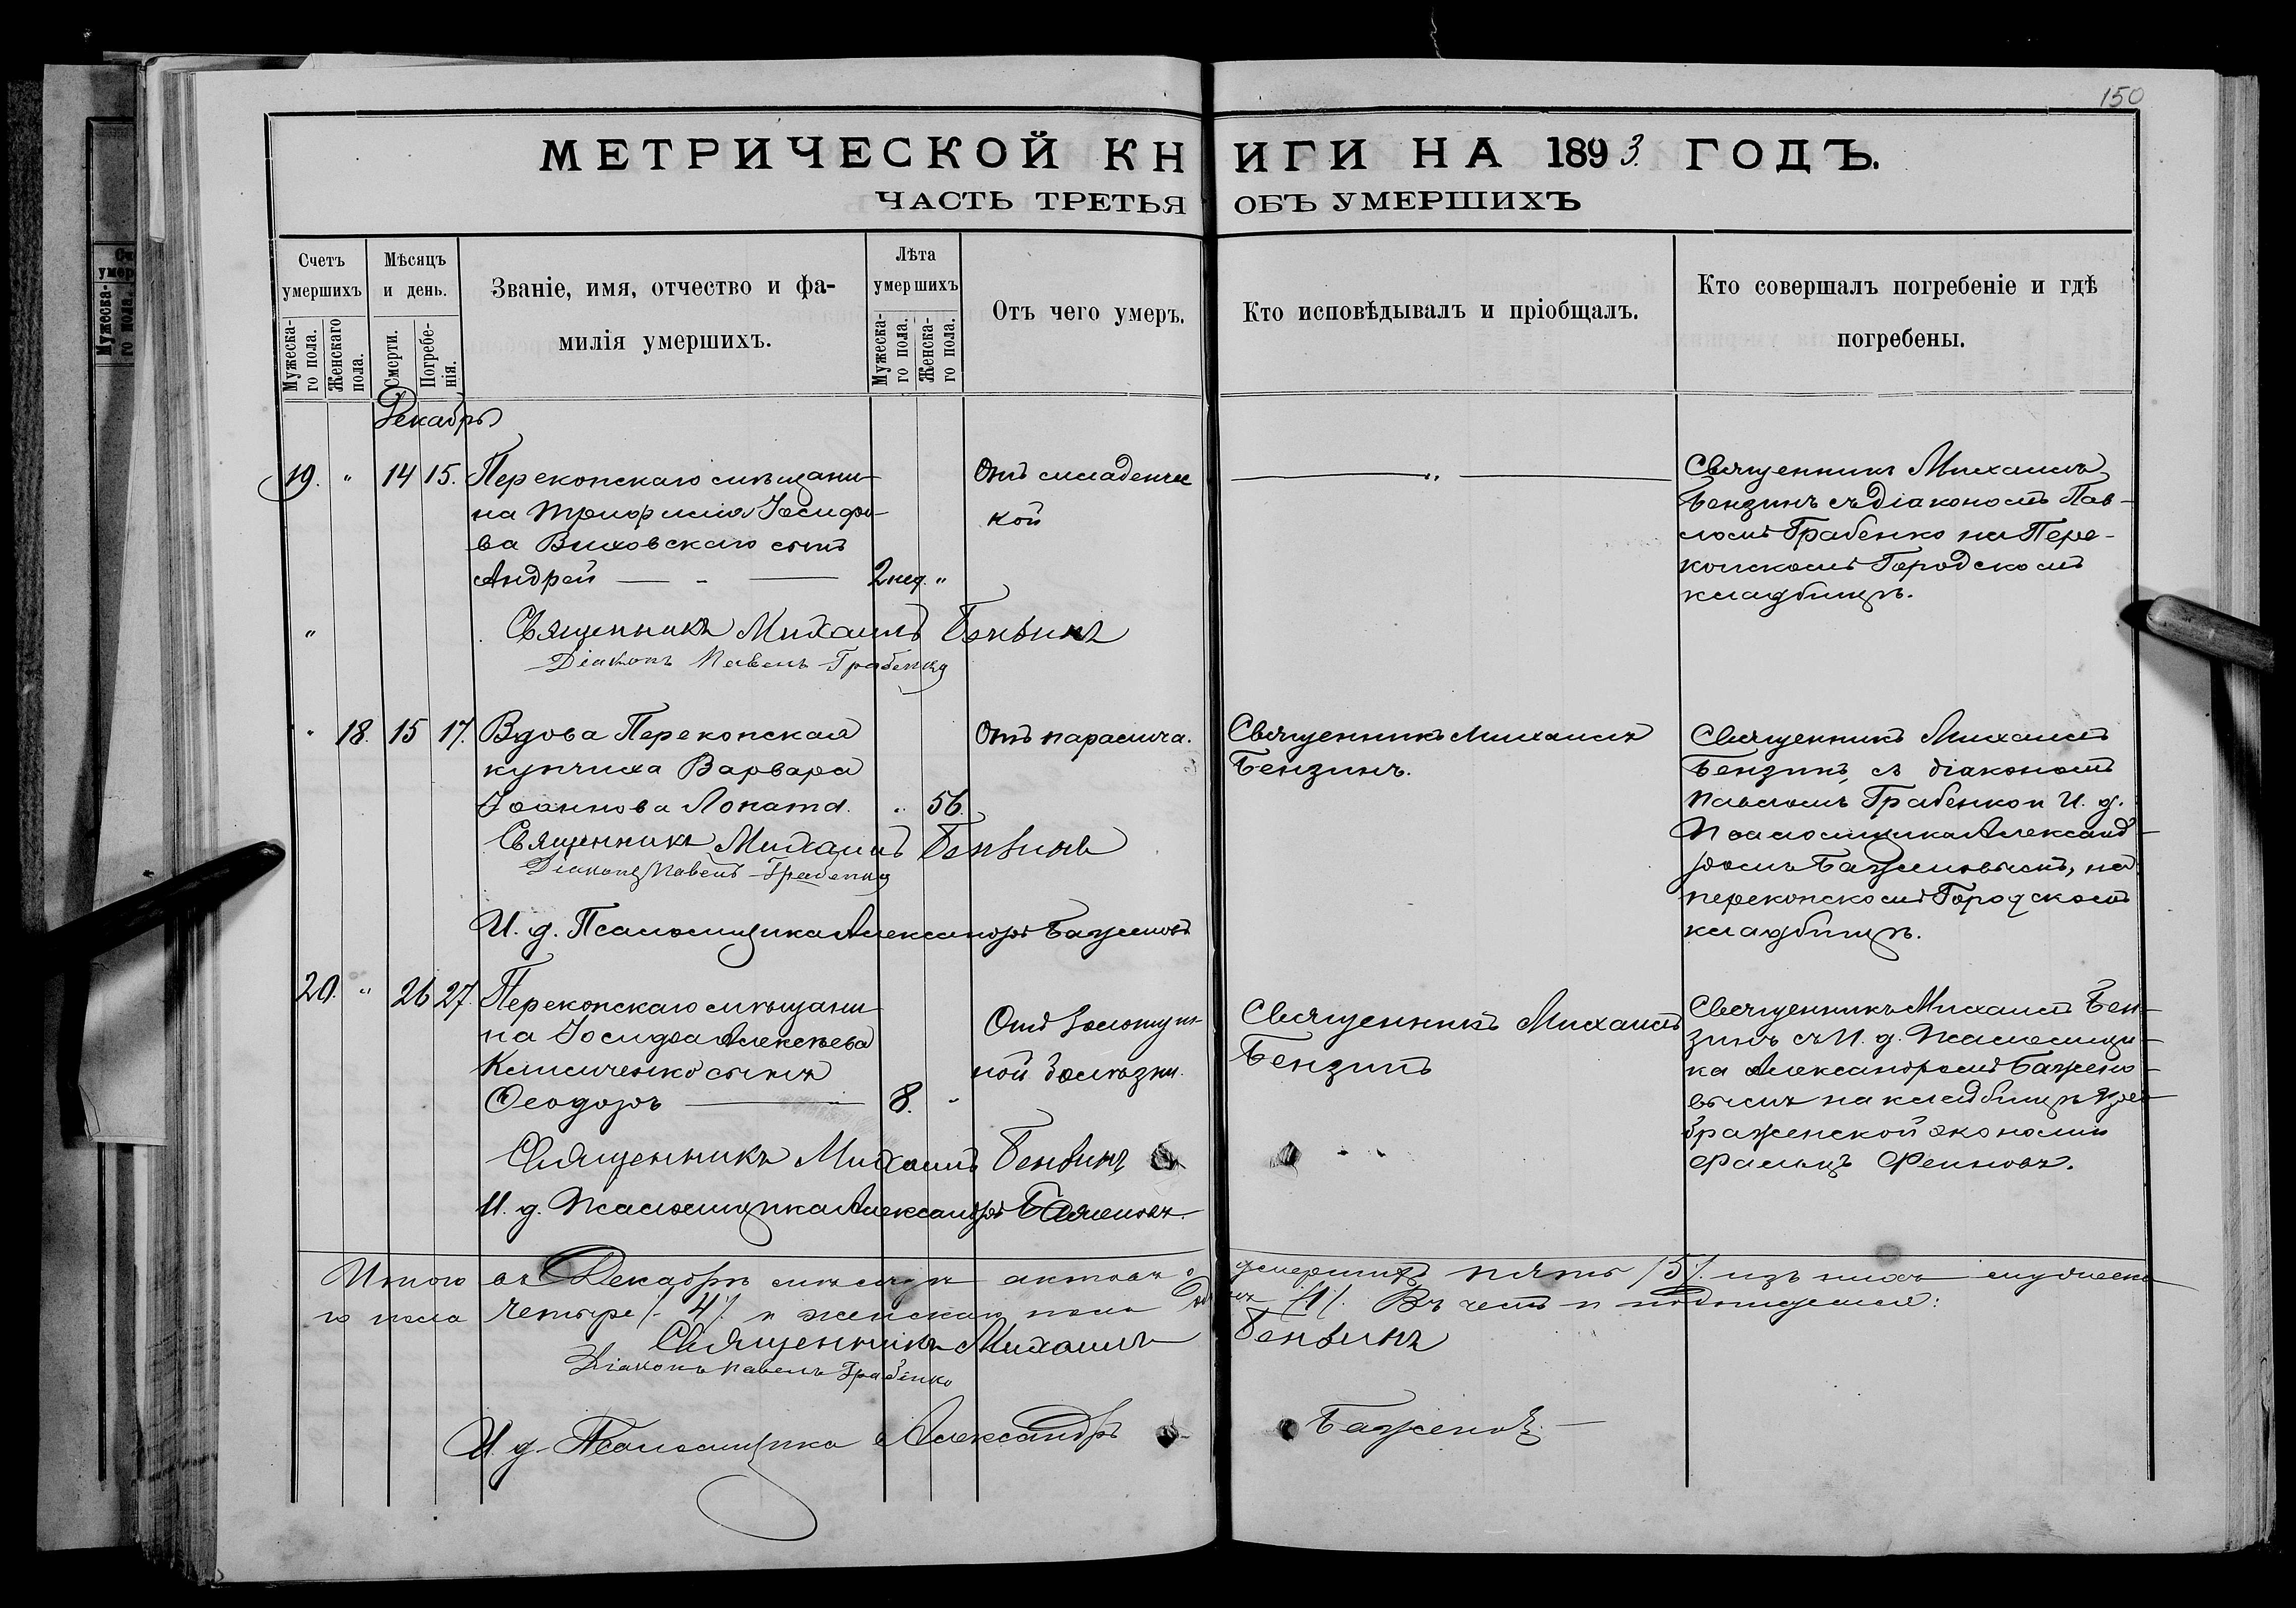 150
МЕТРИЧЕСКОЙ КНИГИ НА 1893. ГОДЪ.
ЧАСТЬ ТРЕТЬЯ ОБЪ УМЕРШИХЪ
Счетъ умершихъ
Мужеска-го пола.
Женскаго пола.
Мѣсяцъ и день.
Смерти.
Погребе-нія.
Званіе, имя, отчество и фа-
милія умершихъ.
Лѣта умершихъ
Мужеска-го пола.
Женска-го пола.
Отъ чего умеръ.
Кто исповѣдывалъ и пріобщалъ.
Кто совершалъ погребеніе и гдѣ
погребены.
Декабрь
19. " 14 15.
Перекопскаго мѣщани-
на Іосифо-
ва Виховскаго сынъ
Андрей — - — 2 нед. "
Отъ младенчес
кой
— " —
Священникъ Михаилъ
Бензинъ съ діакономъ Пав-
ломъ Грабенко на Пере-
копскомъ Городскомъ
кладбищѣ.
"
Священникъ Михаилъ Бензинъ
Діаконъ Павелъ Грабенко
" 18. 15 17.
Вдова Перекопская
купчиха Варвара
Іоаннова Лопата. " 56.
Отъ паралича.
Священникъ Михаилъ
Бензинъ.
Священникъ Михаилъ
Бензинъ, съ діакономъ
Павломъ Грабенко и И. д.
Псаломщика Александ-
ромъ Баженовымъ, на
перекопскомъ Городскомъ
кладбищѣ.
Священникъ Михаилъ Бензинъ
Діаконъ Павелъ Грабенко
И. д. Псаломщика Александръ Баженовъ
20. " 26 27.
Перекопскаго мѣщани-
на Іосифа Алексѣева
Клименко сынъ
Ѳеодоръ — 8. "
Отъ золотуш-
ной болѣзни.
Священникъ Михаилъ
Бензинъ
Священникъ Михаилъ Бен-
зинъ съ И. д. Псаломщи-
ка Александромъ Бажено-
вымъ на кладбищѣ Прео-
браженской экономіи
Фальцъ Фейновъ.
Священникъ Михаилъ Бензинъ
И. д. Псаломщика Александръ Баженовъ.
Итого въ Декабрѣ мѣсяцѣ актовъ о умершихъ пять /5/. изъ нихъ мужеска-
го пола четыре /4/. и женскаго пола /1/. Въ чемъ и подписуемся:
Священникъ Михаилъ Бензинъ
Діаконъ Павелъ Грабенко
И. д. Псаломщика Александръ Баженовъ.